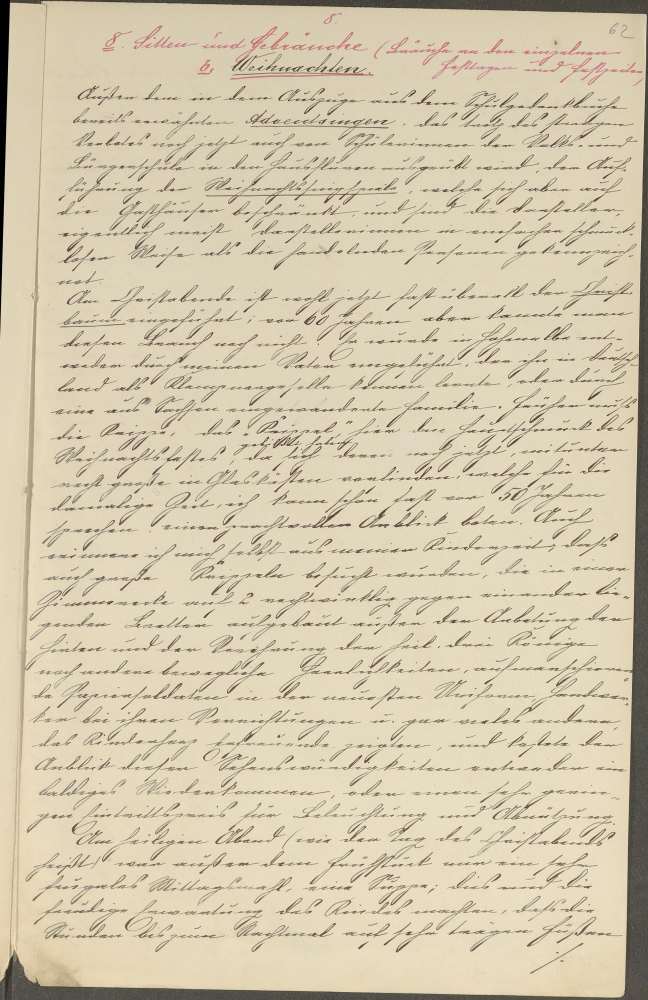 8.
62
8. Sitten und Gebräuche (Bräuche an den einzelnen
Festtagen und Festzeiten)
b, Weihnachten.
Außer dem in dem Auszuge aus dem Schulgedenkbuche
bereits erwähnten Adventsingen, das trotz des strengen
Verbotes noch jetzt auch von Schülerinnen der Volks- und
Bürgerschule in den Hausfluren ausgeübt wird, der Auf-
führung der Weihnachtssingspiele, welche sich aber auf
die Gasthäuser beschränkt, und sind die Darsteller,
eigentlich meist Darstellerinnen in einfacher schmuck-
loser Weise als die handelnden Personen gekennzeich-
net.
Am Christabende ist wohl jetzt fast überall der Christ-
baum eingeführt; vor 60 Jahren aber kannte man
diesen Brauch noch nicht. Er wurde in Hohenelbe ent-
weder durch meinen Vater eingeführt, der ihn in Deutsch-
land als Klempnergeselle kennen lernte, oder durch
eine aus Sachsen eingewanderte Familie. Früher mußte
die Krippe, das "Krippel" hier den Hauptschmuck des
Weihnachtsfestes, da sich deren noch jetzt, mitunter
recht große in Glaskästen vorfinden, welche für die
damalige Zeit, ich kann schon fast von 50 Jahren
sprechen, einen prachtvollen Anblick boten. Auch
erinnere ich mich selbst aus meiner Kinderzeit, daß
auch große Krippeln besucht wurden, die in einer
Zimmerecke auf 2 rechtwinklig gegen einander lie-
genden Brettern aufgebaut außer der Anbetung der
Hirten und der Verehrung der heil. drei Könige
noch andere bewegliche Herrlichkeiten, aufmarschieren-
de Papiersoldaten in der neuesten Uniform, Handwer-
ker bei ihren Verrichtungen u. gar vieles andere,
das Kinderherz erfreuende zeigten, und kostete der
Anblick dieser Sehenswürdigkeiten entweder ein
baldiges Wiederkommen, oder einen sehr gerin-
gen Eintrittspreis für Beleuchtung und Abnützung.
Am heiligen Abend (wie der Tag des Christabends
heißt) war außer dem Frühstück nur ein sehr
frugales Mittagsmahl, eine Suppe; dies und die
freudige Erwartung des Kindes machten, daß die
Stunden bis zum Nachtmal auf sehr trägen Füßen
./.